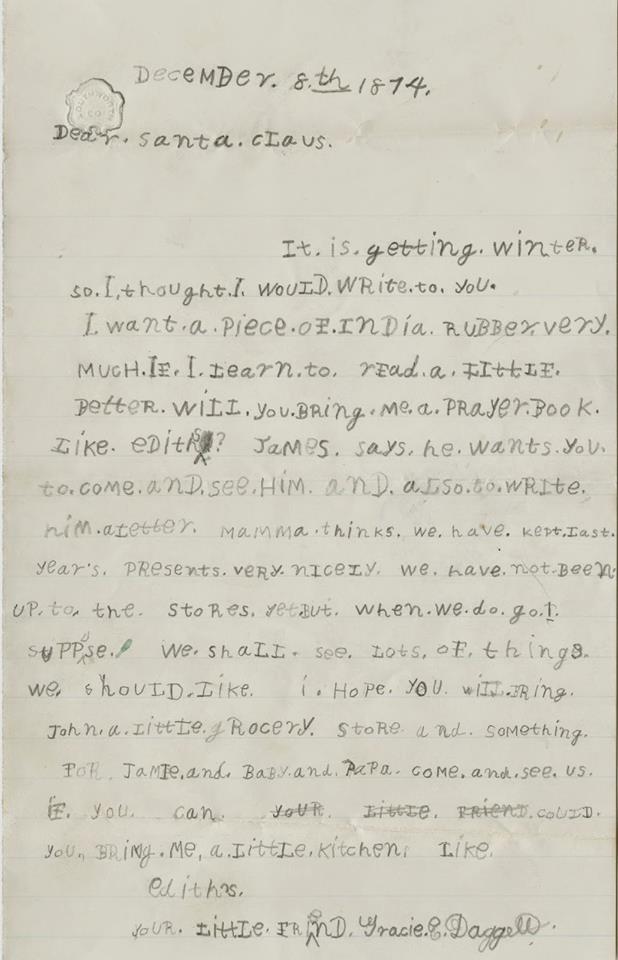 DeceMber. 8.th 1874.
SOUTHWORTH CO
Dear. santa. cLaus.
It. is. getting. winteR.
so. I. thought. I. WOULD. WRite. to. you.
I. want. a. Piece. oF. INDia. RUBBeR. very.
MUCH. IF. I. Learn. to. reaD. a. LIttLE.
BetteR. WiLL. you. BRing. Me. a. PRayeR. BOOK.
Like. eDiths? JaMes. says. he. wants. you.
to. come. anD. see. HiM. anD. aLso. to. WRite.
him. a Letter. Mamma. thinks. we. have. kept. Last.
year's. PResents. very. niceLy. we. have. not. Been.
UP. to. the. stoRes. yet. But. when. we. do. go. I.
suPPose. we. shaLL. see. Lots. oF. things.
we. shOULD. Like. i. HoPe. you. wiLL. BRing.
John. a. LittLe. gROCERy. stoRe. and. soMething.
FOR. JaMIe. and. BaBy. and. PaPa. come. and. see. us.
iF. you. can. youR. LittLe. FRienD. couLD.
you. BRing. Me. a. LittLe. kitchen. Like.
ediths.
youR. LittLe. FRieND. Gracie. E. Daggett.